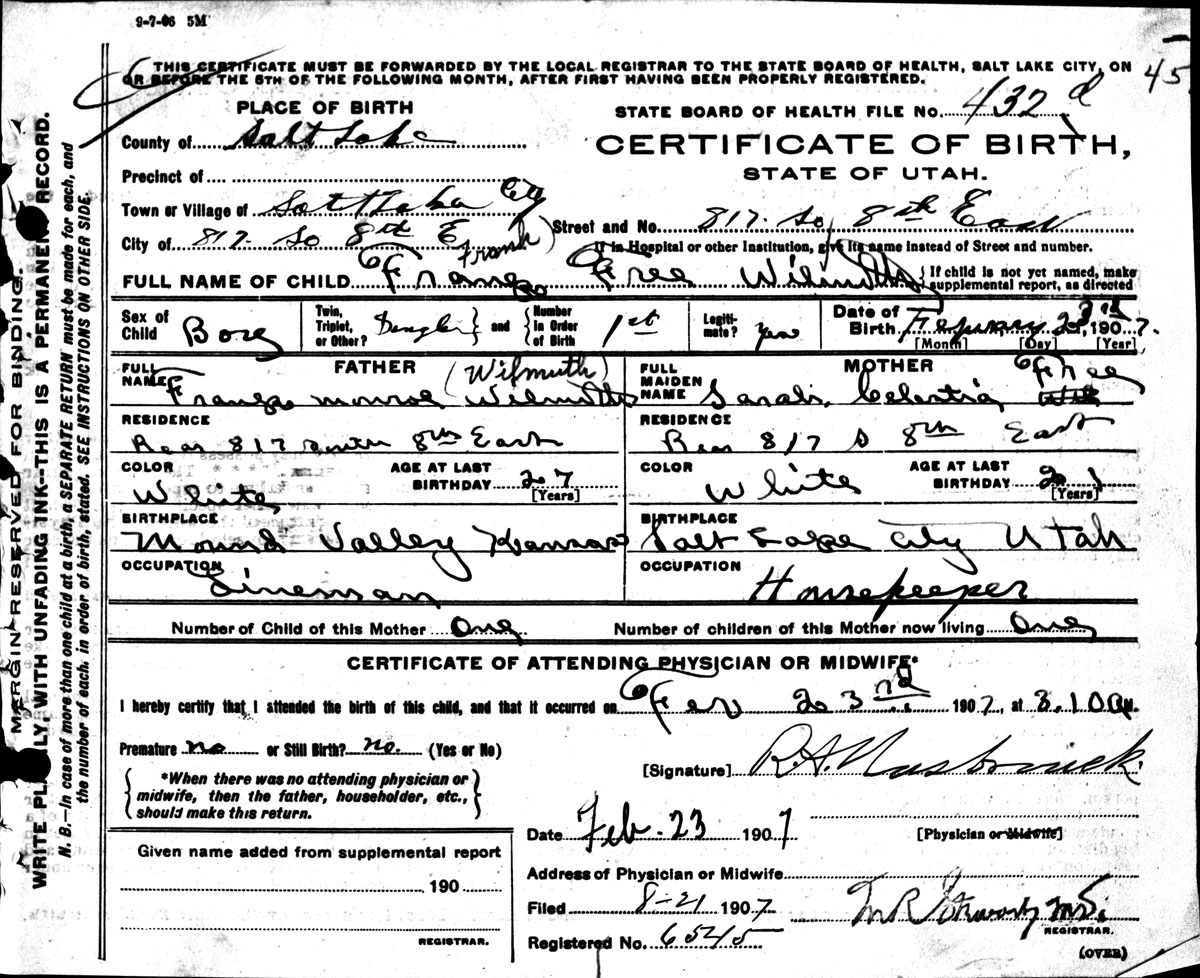 9-7-06 5M
THIS CERTIFICATE MUST BE FORWARDED BY THE LOCAL REGISTRAR TO THE STATE BOARD OF HEALTH, SALT LAKE CITY, ON
OR BEFORE THE 5TH OF THE FOLLOWING MONTH, AFTER FIRST HAVING BEEN PROPERLY REGISTERED.
45
PLACE OF BIRTH
STATE BOARD OF HEALTH FILE No. 432 d
County of Salt Lake
CERTIFICATE OF BIRTH,
STATE OF UTAH.
Precinct of
Town or Village of Salt Lake City
Street and No. 817 So 8th East
City of 817 So 8th E
If in Hospital or other Institution, give its name instead of Street and number.
Frank
FULL NAME OF CHILD Free Wilmuth
{ If child is not yet named, make
supplemental report, as directed
Sex of Child Boy
Twin, Triplet, or Other? Single } and { Number in Order of Birth 1st
Legiti-mate? yes
Date of Birth 23rd, 1907.
[Month] [Day] [Year]
FATHER (Wilmuth)
FULL NAME Monroe Wilmuth
MOTHER
FULL MAIDEN NAME Sarah Celestia Free
RESIDENCE
Rear 817 South 8th East
RESIDENCE
Rear 817 S 8th East
COLOR White
AGE AT LAST BIRTHDAY 27 [Years]
COLOR White
AGE AT LAST BIRTHDAY 21 [Years]
BIRTHPLACE
Mound Valley Kansas
BIRTHPLACE
Salt Lake City Utah
OCCUPATION
Lineman
OCCUPATION
Housekeeper
Number of Child of this Mother One
Number of children of this Mother now living One
CERTIFICATE OF ATTENDING PHYSICIAN OR MIDWIFE*
I hereby certify that I attended the birth of this child, and that it occurred on Feb 23rd 1907, at 3.10 am.
Premature no or Still Birth? no. (Yes or No)
[Signature] R.A. Hasbrouck.
{ *When there was no attending physician or
midwife, then the father, householder, etc.,
should make this return. }
Date Feb. 23 1907
[Physician or Midwife]
Given name added from supplemental report
190
REGISTRAR.
Address of Physician or Midwife
Filed 8-21 1907
REGISTRAR.
Registered No. 6545
(OVER)
MARGIN RESERVED FOR BINDING.
WRITE PLAINLY WITH UNFADING INK--THIS IS A PERMANENT RECORD.
N. B.—In case of more than one child at a birth, a SEPARATE RETURN must be made for each, and
the number of each, in order of birth, stated. SEE INSTRUCTIONS ON OTHER SIDE.